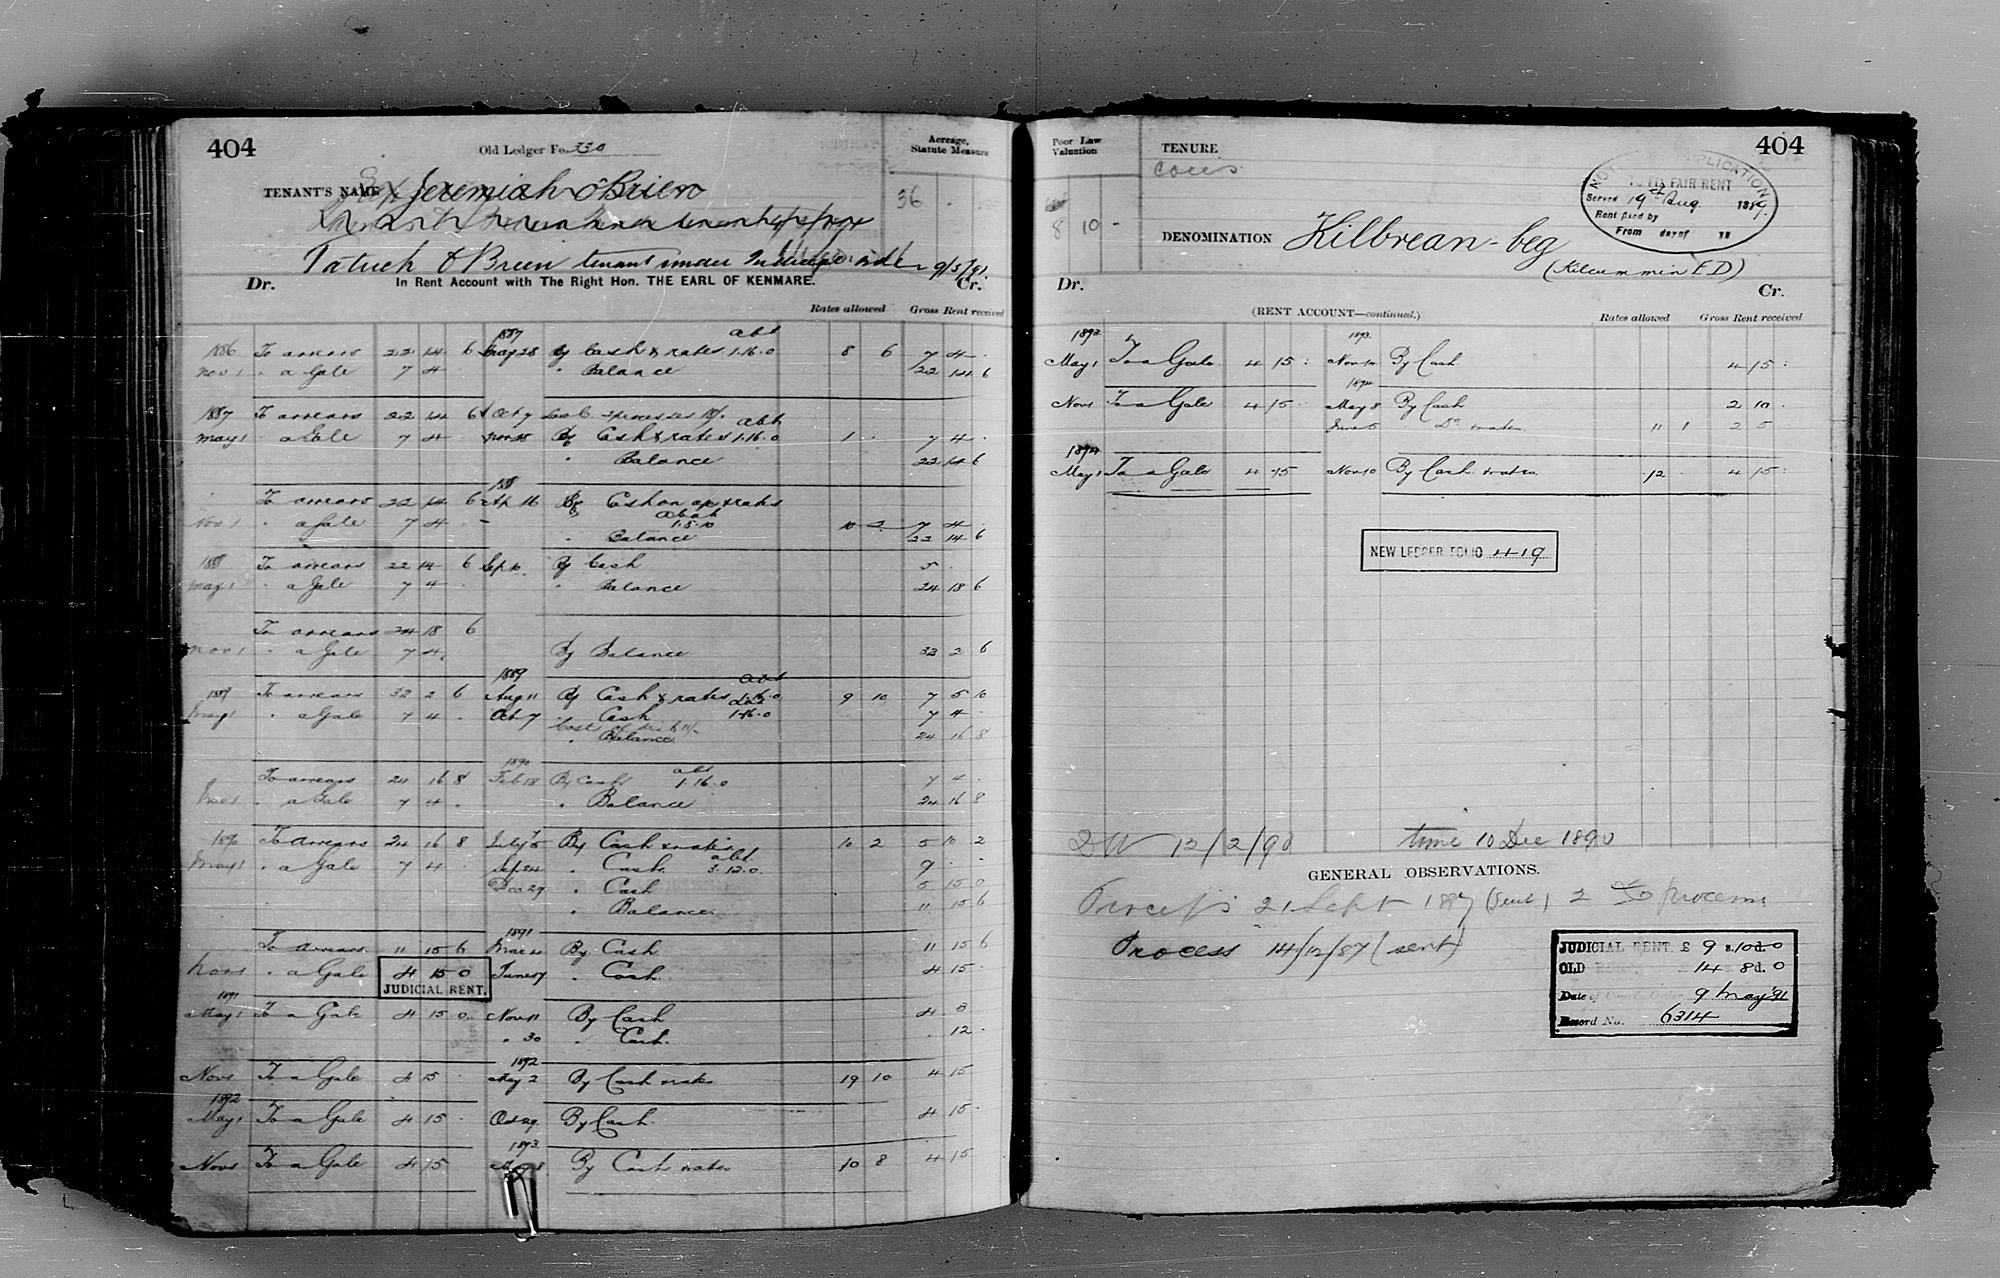 404
Old Ledger Fo. 330
Acreage,
Statute Measure
TENANT'S NAME Jeremiah O'Brien
36
Patrick O'Brien tenant under Judicial 9/5/91.
Dr. In Rent Account with The Right Hon. THE EARL OF KENMARE. Cr.
Rates allowed Gross Rent received
1887 abt
1886 To arrears 22 14 6 May 28 By Cash & rates 1.16.0 8 6 7 4 .
Nov 1 " a Gale 7 4 " Balance 22 14 6
1887 To arrears 22 14 6 Oct 7 processes
abt
May 1 " a Gale 7 4 Nov 25 By Cash & rates 1.16.0 1 . 7 4 .
" Balance 22 14 6
1888
To arrears 22 14 6 Ap 16 By Cash on a/c & rates
abat
Nov 1 " a Gale 7 4 - 1.8.10 10 2 7 4 .
" Balance 22 14 6
1888 To arrears 22 14 6 Sep By Cash 5 .
May 1 " a Gale 7 4 " Balance 24 18 6
To arrears 24 18 6
Nov 1 " a Gale 7 4 By Balance 32 2 6
1889 abt
1889 To arrears 32 2 6 Aug 11 By Cash & rates 1.16.0 9 10 7 5 10
May 1 " a Gale 7 4 . Oct 7 " Cash 1.16.0 7 4 .
Cost of
" Balance 24 16 8
1890 abt
To arrears 24 16 8 Feb 18 By Cash 1.16.0 7 4 .
Nov 1 " a Gale 7 4 . " Balance 24 16 8
1890 To Arrears 24 16 8 July 5 By Cash & rates 10 2 5 10 2
abt
May 1 " a Gale 7 4 Sep 24 " Cash 3.12.0 9 . .
Dec 29 " Cash 5 15 0
" Balance 11 15 6
1891
To Arrears 11 15 6 Mar By Cash 11 15 6
Nov 1 " a Gale 4 15 0 June " Cash 4 15 .
JUDICIAL RENT.
1891
May 1 To a Gale 4 15 0 Nov 11 By Cash 4 3
" 30 " Cash . 12 .
1892
Nov 1 To a Gale 4 15 . May 2 By Cash & rates 19 10 4 15
1892
May 1 To a Gale 4 15 . Oct 29 By Cash 4 15 .
1893
Nov 1 To a Gale 4 15 By Cash & rates 10 8 4 15
Poor Law
Valuation
TENURE
404
8 10 -
NOTICE APPLICATION
TO FIX FAIR RENT
Served 19th Aug 1889.
Rent fixed by
From day of 18
DENOMINATION Kilbrean-beg
(Kilcummin E D)
Dr. Cr.
(RENT ACCOUNT—continued.) Rates allowed Gross Rent received
1893 1893
May 1 To a Gale 4 15 : Nov 10 By Cash 4 15 :
1894
Nov 1 To a Gale 4 15 May 8 By Cash 2 10 .
June 5 Do & rates 11 1 2 5
1894
May 1 To a Gale 4 15 Nov 10 By Cash & rates 12 4 15 :
NEW LEDGER FOLIO 419
12/2/90 time 10 Dec 1890
GENERAL OBSERVATIONS.
Process 21 Sept 1887 (Sent) 2 processes
Process 14/12/87 (sent)
JUDICIAL RENT. £ 9 s. 10 d. 0
OLD RENT 14 8 d. 0
Date of Court Order 9 May '91
Record No. 6314